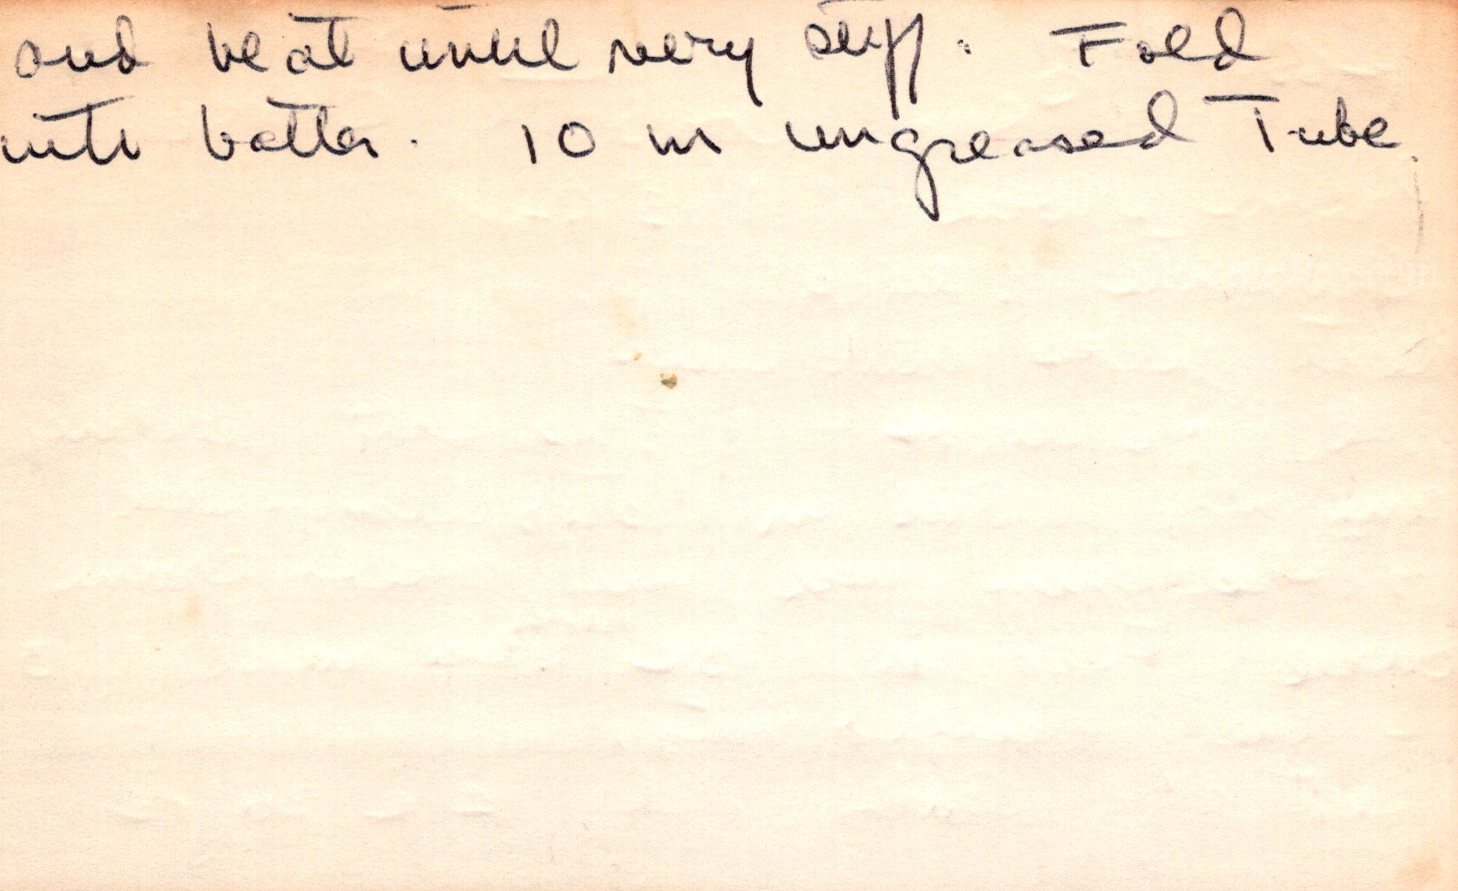 and beat until very stiff. Fold
into batter. 10 in ungreased Tube.